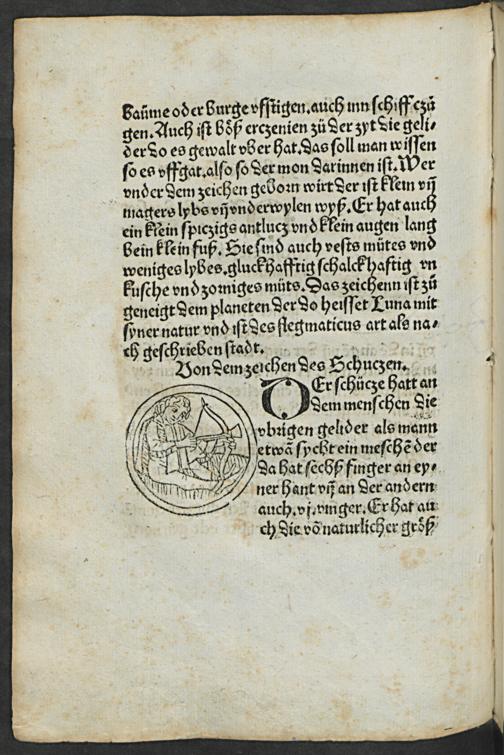 baüme oder burge vffstigen. auch inn schiff czü
gen. Auch ist böß erczenien zü der zyt die geli⸗
der do es gewalt vber hat. das soll man wissen
so es vffgat. also so der mon darinnen ist. Wer
vnder dem zeichen geborn wirt der ist klein vñ
magers lybs vñ vnderwylen wyß. Er hat auch
ein klein spiczigs antlucz vnd klein augen lang
bein klein fuß. Sie sind auch vests mütes vnd
weniges lybes. gluckhafftig schalckhaftig vn
kusche vnd zorniges müts. Das zeichenn ist zü
geneigt dem planeten der do heisset Luna mit
syner natur vnd ist des flegmaticus art als na⸗
ch geschrieben stadt.
Von dem zeichen des Schuczen.
DEr schücze hatt an
dem menschen die
vbrigen gelider als mann
etwā sycht ein meschē der
da hat sechß finger an ey⸗
ner hant vñ an der andern
auch .vj. vinger. Er hat au
ch die vō naturlicher größ